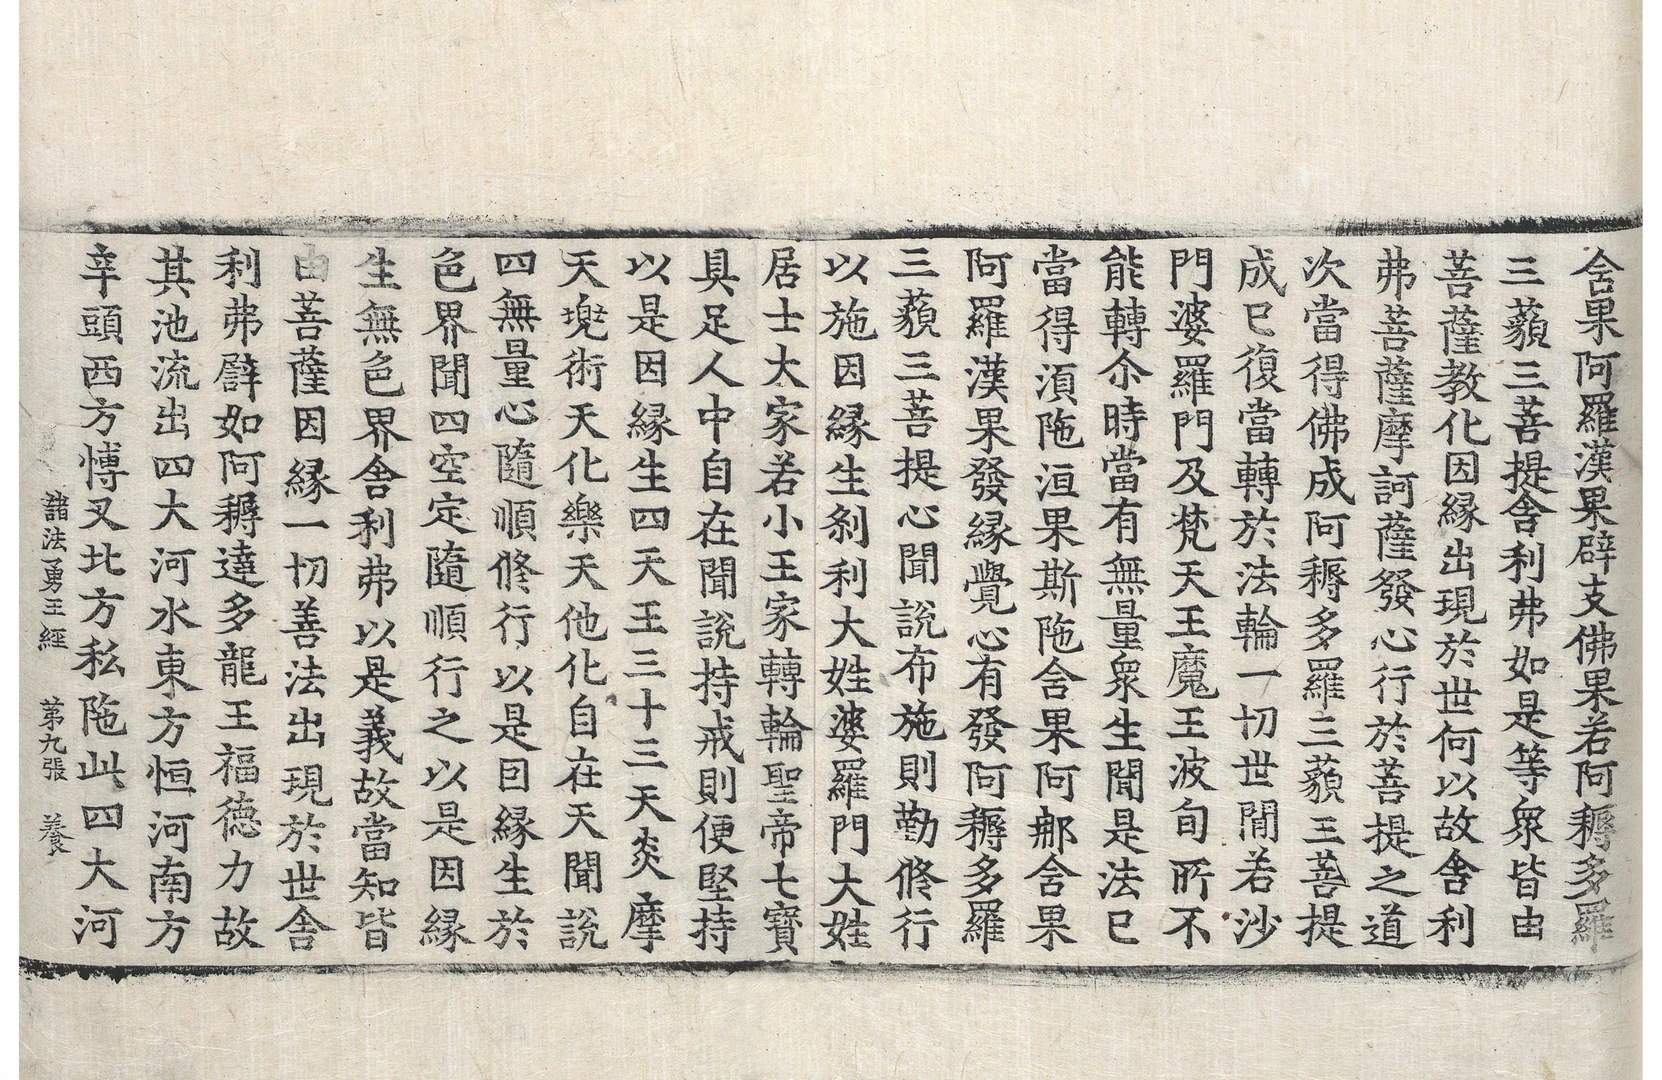 舍果阿羅漢果辟支佛果若阿耨多羅
三藐三菩提舍利弗如是等衆皆由
菩薩教化因緣出現於世何以故舍利
弗菩薩摩訶薩發心行於菩提之道
次當得佛成阿耨多羅三藐三菩提
成已復當轉於法輪一切世間若沙
門婆羅門及梵天王魔王波旬所不
能轉尒時當有無量衆生聞是法已
當得湏陁洹果斯陁含果阿那含果
阿羅漢果發緣覺心有發阿耨多羅
三藐三菩提心聞說布施則勤修行
以施因緣生剎利大姓婆羅門大姓
居士大家若小王家轉輪聖帝七寶
具足人中自在聞說持戒則便堅持
以是因緣生四天王三十三天炎摩
天兠術天化樂天他化自在天聞說
四無量心隨順修行以是因緣生於
色界聞四空定隨順行之以是因緣
生無色界舍利弗以是義故當知皆
由菩薩因緣一切善法出現於世舍
利弗譬如阿耨達多龍王福德力故
其池流出四大河水東方恒河南方
辛頭西方愽叉北方私陁此四大河
諸法勇王經　第九張　養